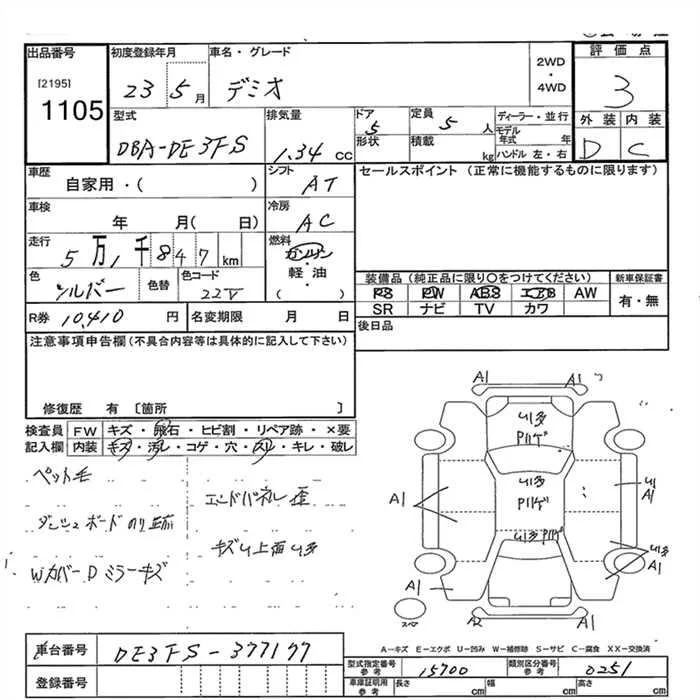 出品番号
[2195]
1105
初度登録年月
23 5月
車名・グレード
デミオ
2WD
・
4WD
評価点
3
外装 内装
D C
型式
DBA-DE3FS
排気量
1.34 cc
ドア
5
形状
定員
5 人
積載
kg
ディーラー・並行
モデル年式 年
ハンドル 左・右
車歴
自家用・( )
シフト
AT
セールスポイント (正常に機能するものに限ります)
車検
年 月( 日)
冷房
AC
走行
5万1千847km
燃料
ガソリン
・
軽油
( )
色
シルバー
色替
色コード
22V
装備品 (純正品に限り○をつけてください)
PS PW ABS エアB AW
SR ナビ TV カワ
新車保証書
有・無
R券 10,410 円
名変期限 月 日
後日品
注意事項申告欄(不具合内容等は具体的に記入して下さい)
修復歴 有 〔箇所 〕
検査員記入欄
FW キズ・飛石・ヒビ割・リペア跡・×要
内装 キズ・汚レ・コゲ・穴・スレ・キレ・破レ
ペット毛
ダッシュボードのり跡
Wカバー D ミラーキズ
エンドパネル歪
キズU上面U多
A1 A1
U多
Pハゲ
U多
Pハゲ
U多Pハゲ
A1
U
A1
U多
A1
A1 A1
スペア
A-キズ E-エクボ U-凹み W-補修跡 S-サビ C-腐食 XX-交換済
車台番号 DE3FS-377177
登録番号
型式指定番号
参考
15700
類別区分番号
参考
0251
車庫証明用
参考
長さ cm
幅 cm
高さ cm